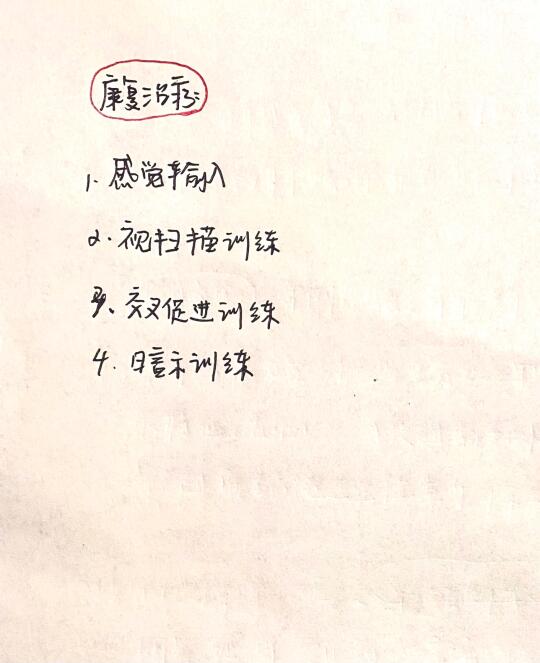 康复治疗
1. 感觉输入
2. 视扫描训练
3. 交叉促进训练
4. 暗示训练